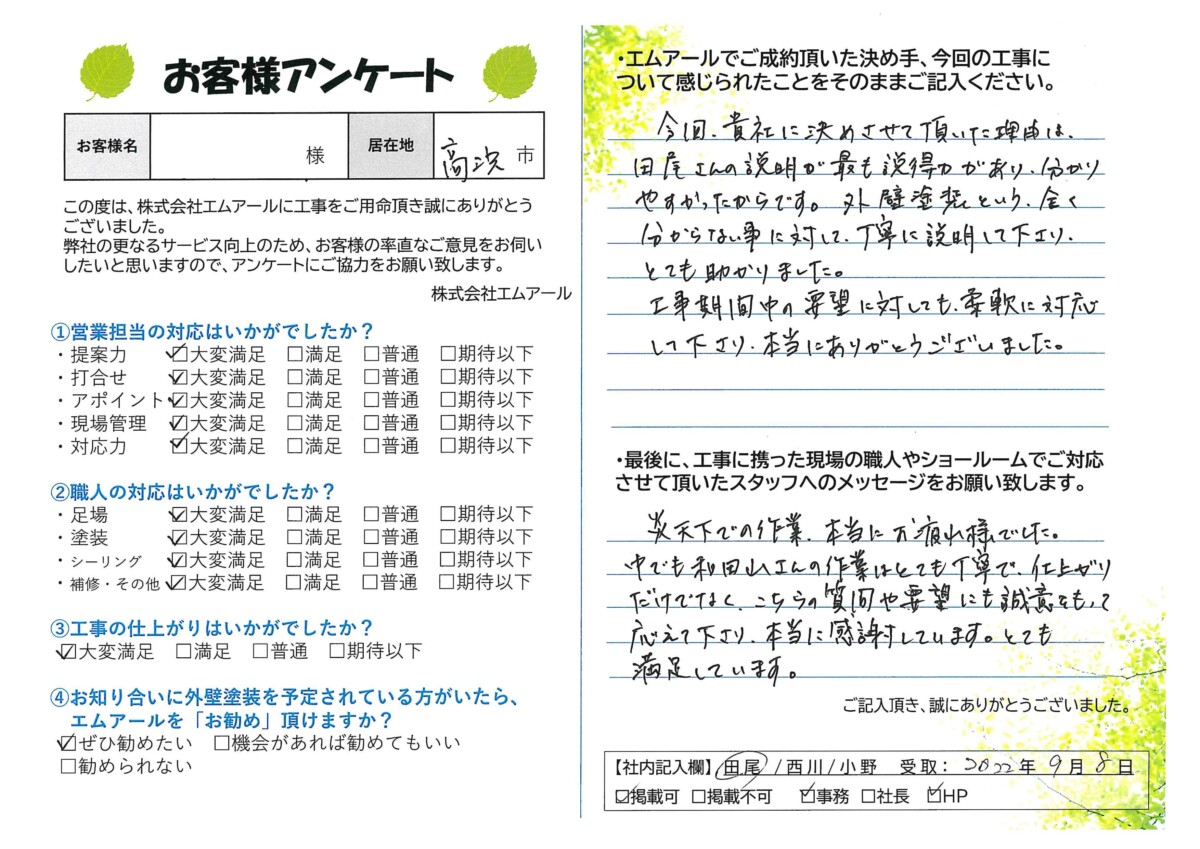 お客様アンケート
お客様名 様 居在地 高浜 市
この度は、株式会社エムアールに工事をご用命頂き誠にありがとう
ございました。
弊社の更なるサービス向上のため、お客様の率直なご意見をお伺い
したいと思いますので、アンケートにご協力をお願い致します。
株式会社エムアール
①営業担当の対応はいかがでしたか？
・提案力 ☑大変満足 □満足 □普通 □期待以下
・打合せ ☑大変満足 □満足 □普通 □期待以下
・アポイント ☑大変満足 □満足 □普通 □期待以下
・現場管理 ☑大変満足 □満足 □普通 □期待以下
・対応力 ☑大変満足 □満足 □普通 □期待以下
②職人の対応はいかがでしたか？
・足場 ☑大変満足 □満足 □普通 □期待以下
・塗装 ☑大変満足 □満足 □普通 □期待以下
・シーリング ☑大変満足 □満足 □普通 □期待以下
・補修・その他 ☑大変満足 □満足 □普通 □期待以下
③工事の仕上がりはいかがでしたか？
☑大変満足 □満足 □普通 □期待以下
④お知り合いに外壁塗装を予定されている方がいたら、
エムアールを「お勧め」頂けますか？
☑ぜひ勧めたい □機会があれば勧めてもいい
□勧められない
・エムアールでご成約頂いた決め手、今回の工事に
ついて感じられたことをそのままご記入ください。
今回、貴社に決めさせて頂いた理由は、
田尾さんの説明が最も説得力があり、分かり
やすかったからです。外壁塗装という、全く
分からない事に対して、丁寧に説明して下さり、
とても助かりました。
工事期間中の要望に対しても、柔軟に対応
して下さり、本当にありがとうございました。
・最後に、工事に携った現場の職人やショールームでご対応
させて頂いたスタッフへのメッセージをお願い致します。
炎天下での作業、本当にお疲れ様でした。
中でも和田山さんの作業はとても丁寧で、仕上がり
だけでなく、こちらの質問や要望にも誠意をもって
応えて下さり、本当に感謝しています。とても
満足しています。
ご記入頂き、誠にありがとうございました。
【社内記入欄】 田尾 / 西川 / 小野 受取： 2022年 9月 8日
☑掲載可 □掲載不可 ☑事務 □社長 ☑HP